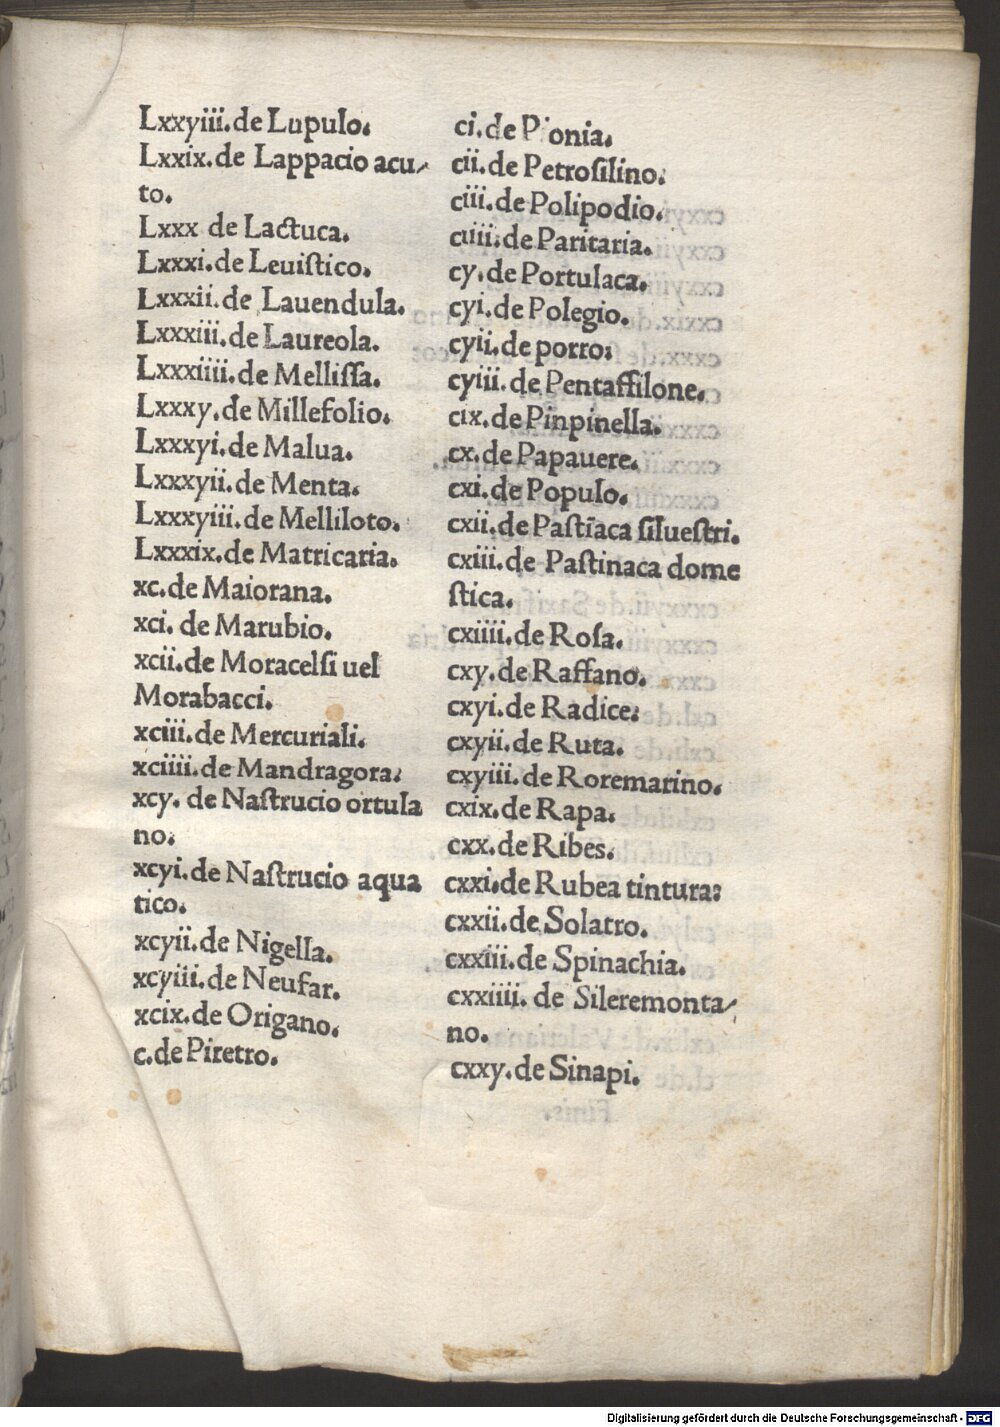 Lxxyiii.de Lupulo.
Lxxix.de Lappacio acu-
to.
Lxxx de Lactuca.
Lxxxi.de Leuiſtico.
Lxxxii.de Lauendula.
Lxxxiii.de Laureola.
Lxxxiiii.de Melliſſa.
Lxxxy.de Millefolio.
Lxxxyi.de Malua.
Lxxxyii.de Menta.
Lxxxyiii.de Melliloto.
Lxxxix.de Matricaria.
xc.de Maiorana.
xci. de Marubio.
xcii.de Moracelſi uel
Morabacci.
xciii.de Mercuriali.
xciiii.de Mandragora.
xcy. de Naſtrucio ortula
no.
xcyi.de Naſtrucio aqua
tico.
xcyii.de Nigella.
xcyiii.de Neufar.
xcix.de Origano.
c.de Piretro.
ci.de P onia.
cii.de Petroſilino.
ciii.de Polipodio.
ciiii.de Paritaria.
cy.de Portulaca.
cyi.de Polegio.
cyii.de porro.
cyiii.de Pentaffilone.
cix.de Pinpinella.
cx.de Papauere.
cxi.de Populo.
cxii.de Paſtīaca ſilueſtri.
cxiii.de Paſtinaca dome
ſtica.
cxiiii.de Roſa.
cxy.de Raffano.
cxyi.de Radice.
cxyii.de Ruta.
cxyiii.de Roremarino.
cxix.de Rapa.
cxx.de Ribes.
cxxi.de Rubea tintura.
cxxii.de Solatro.
cxxiii.de Spinachia.
cxxiiii. de Sileremonta-
no.
cxxy.de Sinapi.
Digitalisierung gefördert durch die Deutsche Forschungsgemeinschaft - DFG